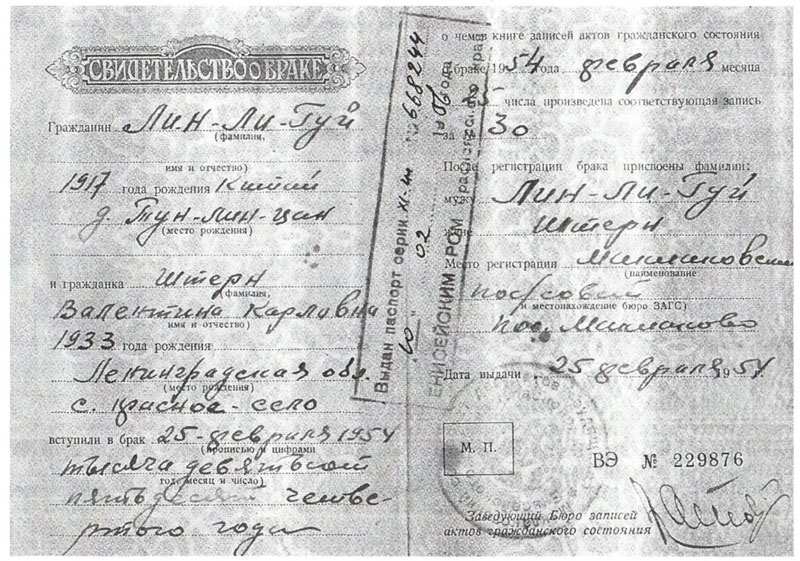 СВИДЕТЕЛЬСТВО О БРАКЕ
Гражданин Лин-Ли-Гуй
(фамилия,
имя и отчество)
1917 года рождения Китай
д. Тун-Лин-Цин
(место рождения)
и гражданка Штерн
(фамилия,
Валентина Карлавна
имя и отчество)
1933 года рождения
Ленинградская обл.
(место рождения)
с. Красное-село
вступили в брак 25-февраля 1954
(прописью и цифрами
тысяча девятьсот
год, месяц и число)
пятьдесят четве-
ртого года
Выдан паспорт серии 668244
"10" 02
ЕНИСЕЙСКИМ РОМ
о чем в книге записей актов гражданского состояния
о браке 1954 года февраля месяца
25 числа произведена соответствующая запись
за № 30
После регистрации брака присвоены фамилии:
мужу Лин-Ли-Гуй
жене Штерн
Место регистрации
(наименование
поссовет
и местонахождение бюро ЗАГС)
пос. Маклаково
Дата выдачи 25 февраля 1954 г.
М. П.
ВЭ № 229876
Заведующий Бюро записей
актов гражданского состояния